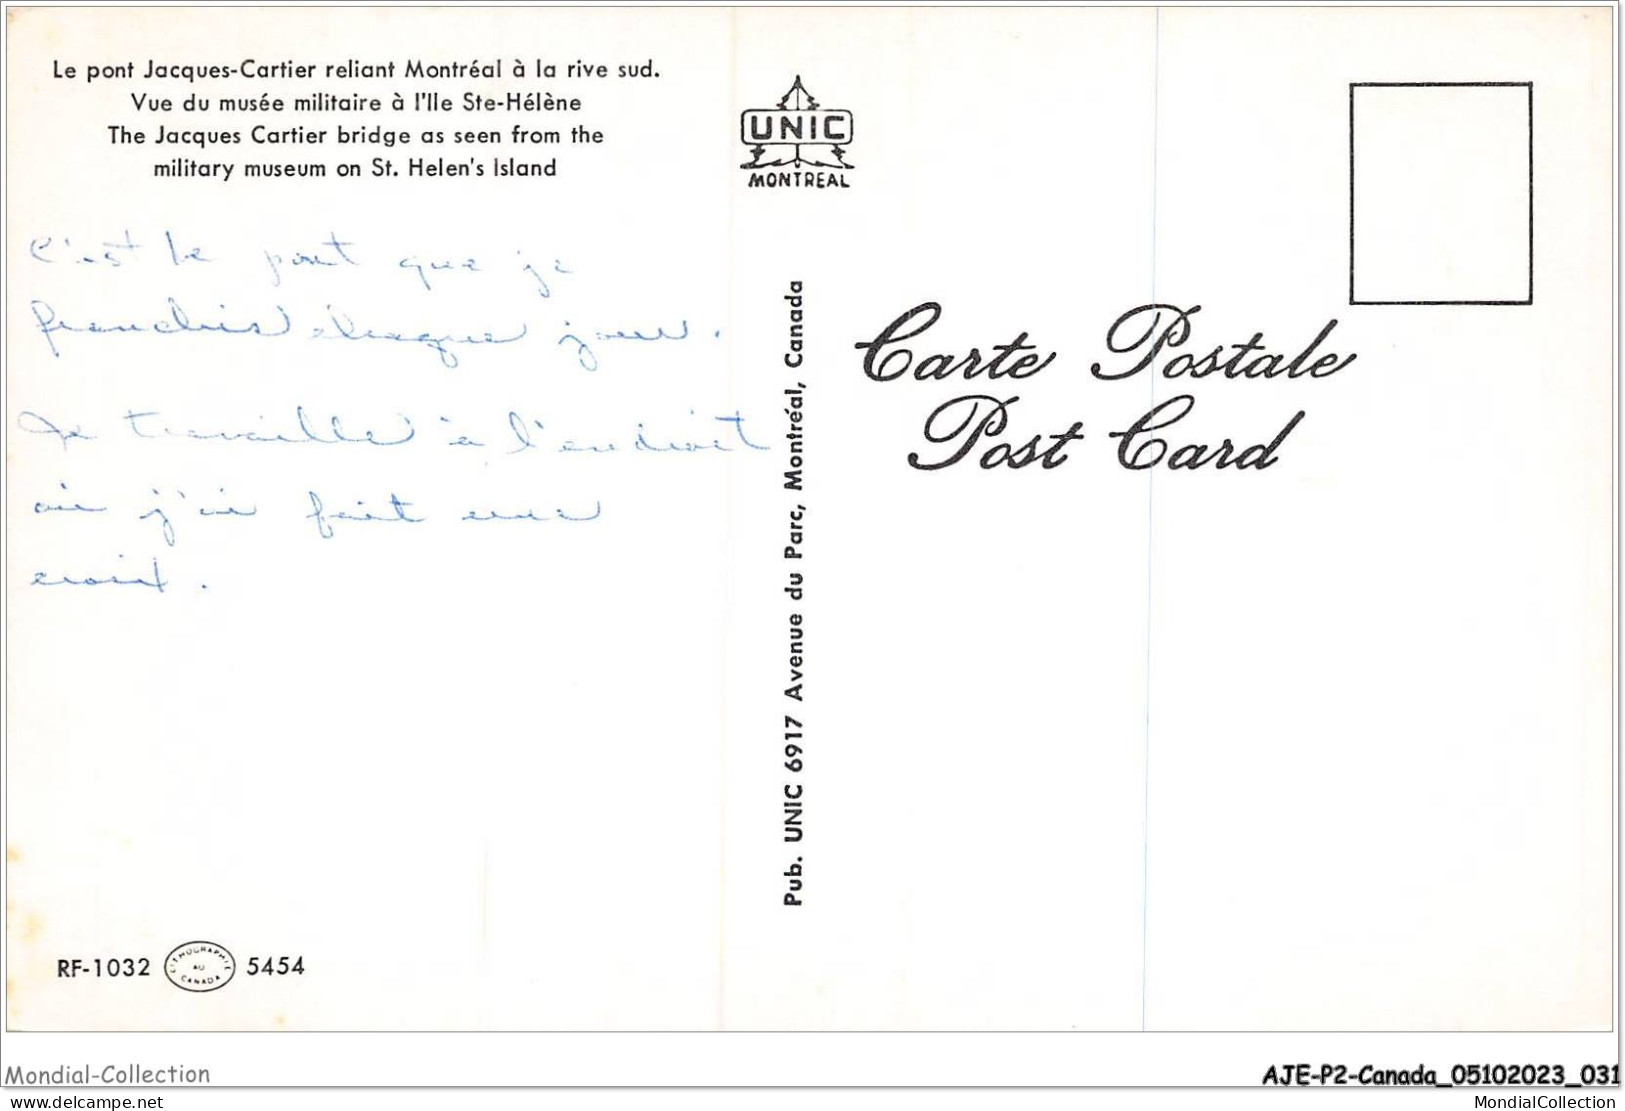 Le pont Jacques-Cartier reliant Montréal à la rive sud.
Vue du musée militaire à l'Ile Ste-Hélène
The Jacques Cartier bridge as seen from the
military museum on St. Helen's Island
C'est le pont que je
franchis chaque jour.
Je travaille à l'endroit
où j'ai fait une
croix.
RF-1032
LITHOGRAPHIE
AU
CANADA
5454
UNIC
MONTREAL
Pub. UNIC 6917 Avenue du Parc, Montréal, Canada
Carte Postale
Post Card
Mondial-Collection
AJE-P2-Canada_05102023_031
delcampe.net
MondialCollection